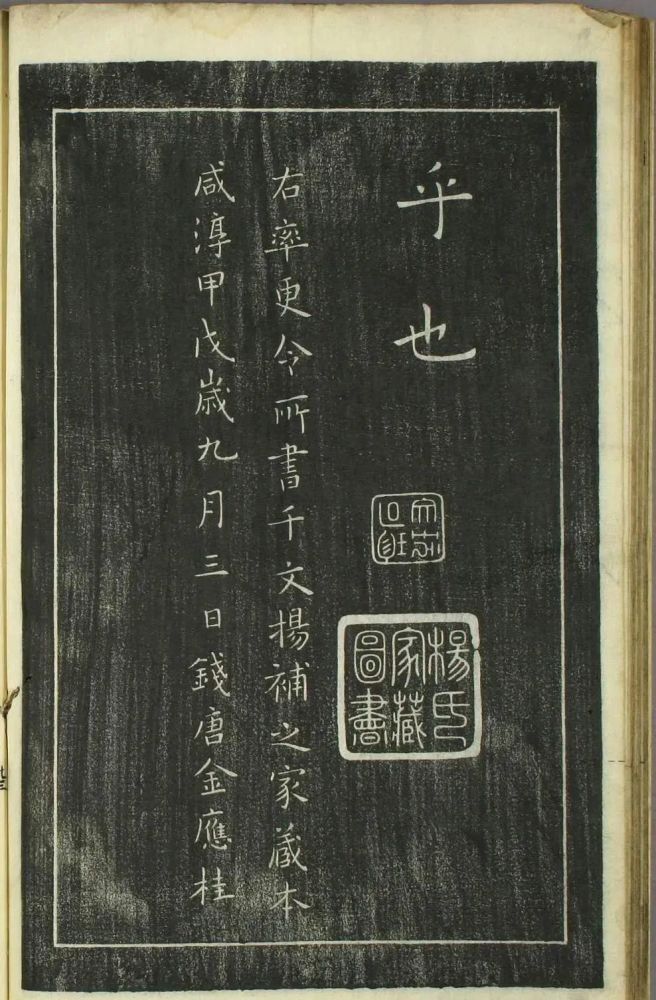 乎也
楊氏家藏圖書
右率更令所書千文楊補之家藏本
咸淳甲戌歲九月三日錢唐金應桂